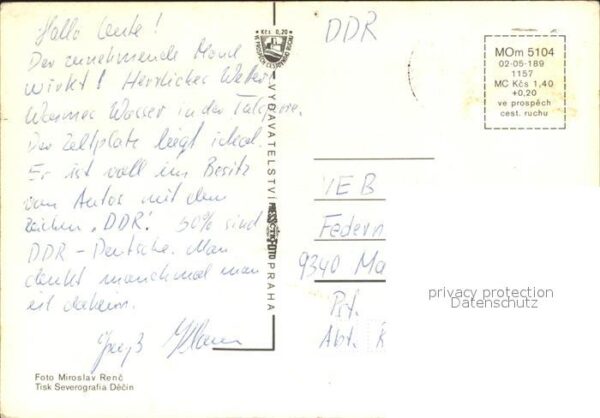 Hallo Leute!
Der zunehmende Mond
wirkt! Herrliches Wetter
Warmes Wasser in der Talsperre.
Der Zeltplatz liegt ideal.
Er ist voll im Besitz
von Autos mit dem
Zeichen „DDR“. 50% sind
DDR-Deutsche. Man
denkt manchmal man
ist daheim.
Gruß
Foto Miroslav Renč
Tisk Severografia Děčín
Kčs 0,20
VE PROSPĚCH CESTOVNÍHO RUCHU
VYDAVATELSTVÍ
PRESSFOTO
PRAHA
DDR
MOm 5104
02-05-189
1157
MC Kčs 1,40
+0,20
ve prospěch
cest. ruchu
VEB
Federn
9340 Ma
Abt.
privacy protection
Datenschutz